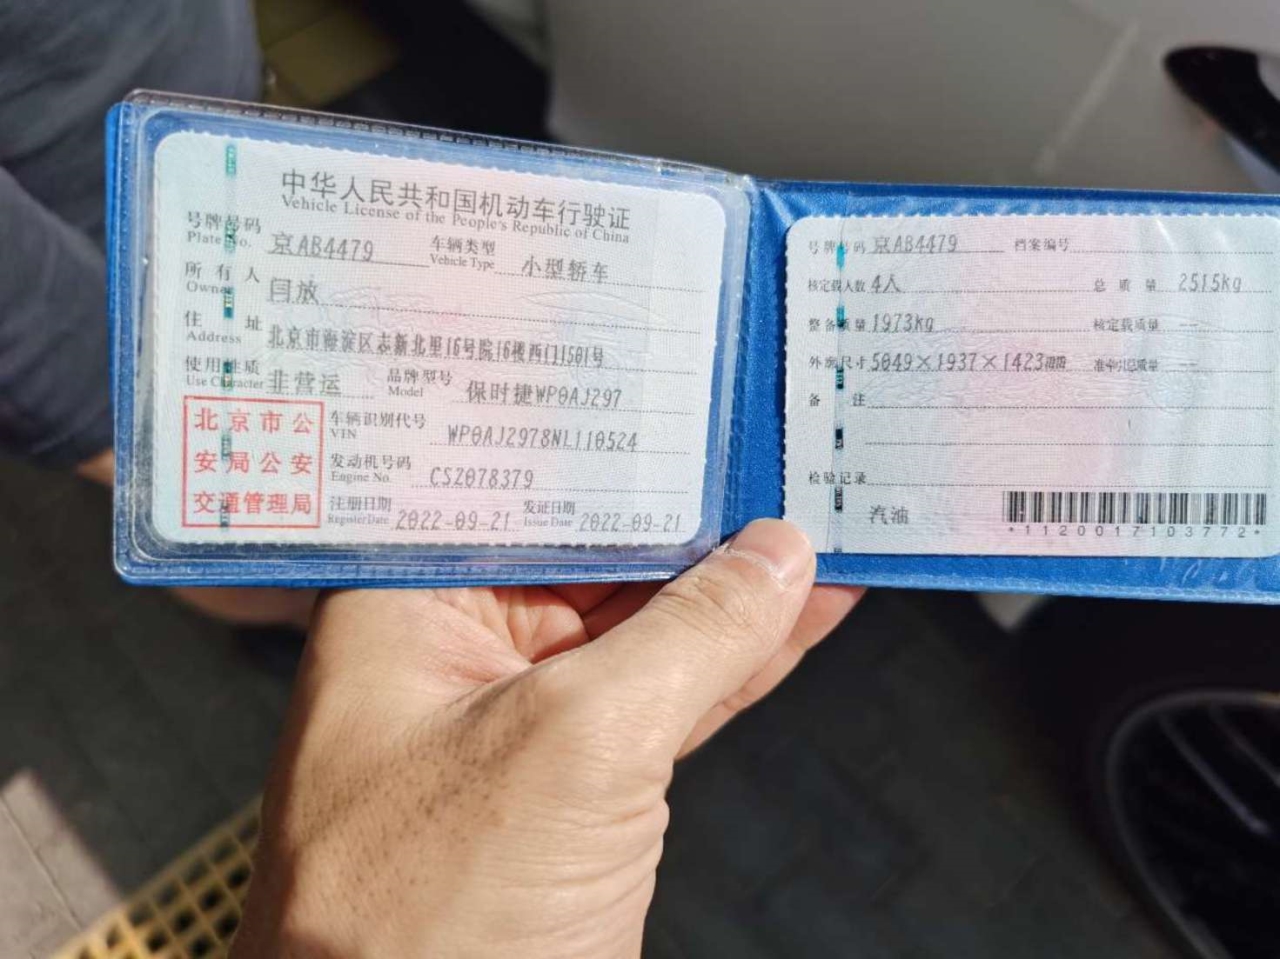 中华人民共和国机动车行驶证
Vehicle License of the People's Republic of China
号牌号码 京AB4479 车辆类型 小型轿车
Plate No. Vehicle Type
所有人 闫放
Owner
住址 北京市海淀区志新北里16号院16楼西门1501号
Address
使用性质 非营运 品牌型号 保时捷WP0AJ297
Use Character Model
北京市公
安局公安
交通管理局
车辆识别代号 WP0AJ2978NL110524
VIN
发动机号码 CSZ078379
Engine No.
注册日期 2022-09-21 发证日期 2022-09-21
Register Date Issue Date
号牌号码 京AB4479 档案编号
核定载人数 4人 总质量 2515kg
整备质量 1973kg 核定载质量 --
外廓尺寸 5049×1937×1423mm 准牵引总质量 --
备注
检验记录
汽油
*1120017103772*